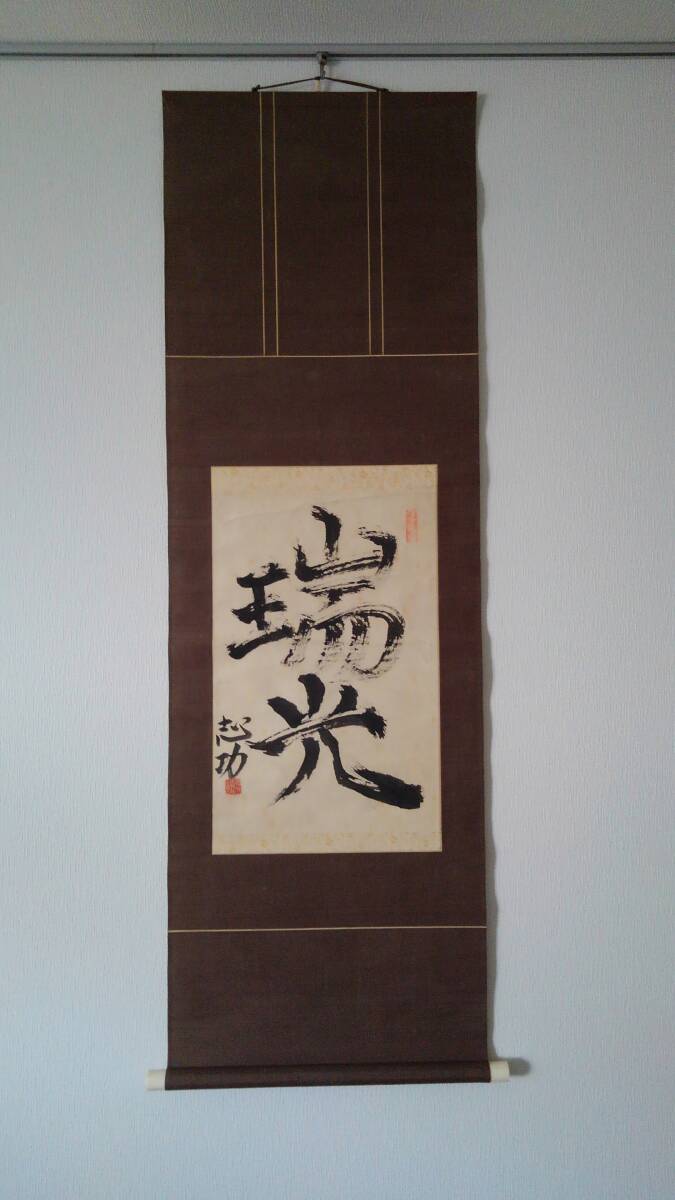 瑞光
志功